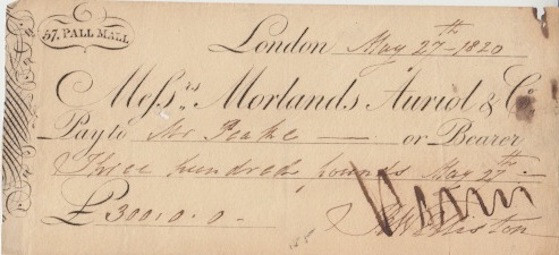 57. PALL MALL
London May 27th - 1820
Messrs. Morlands Auriol & Co.
Pay to Mr Peake — or Bearer
Three hundred pounds May 27th -
£300.0.0 -